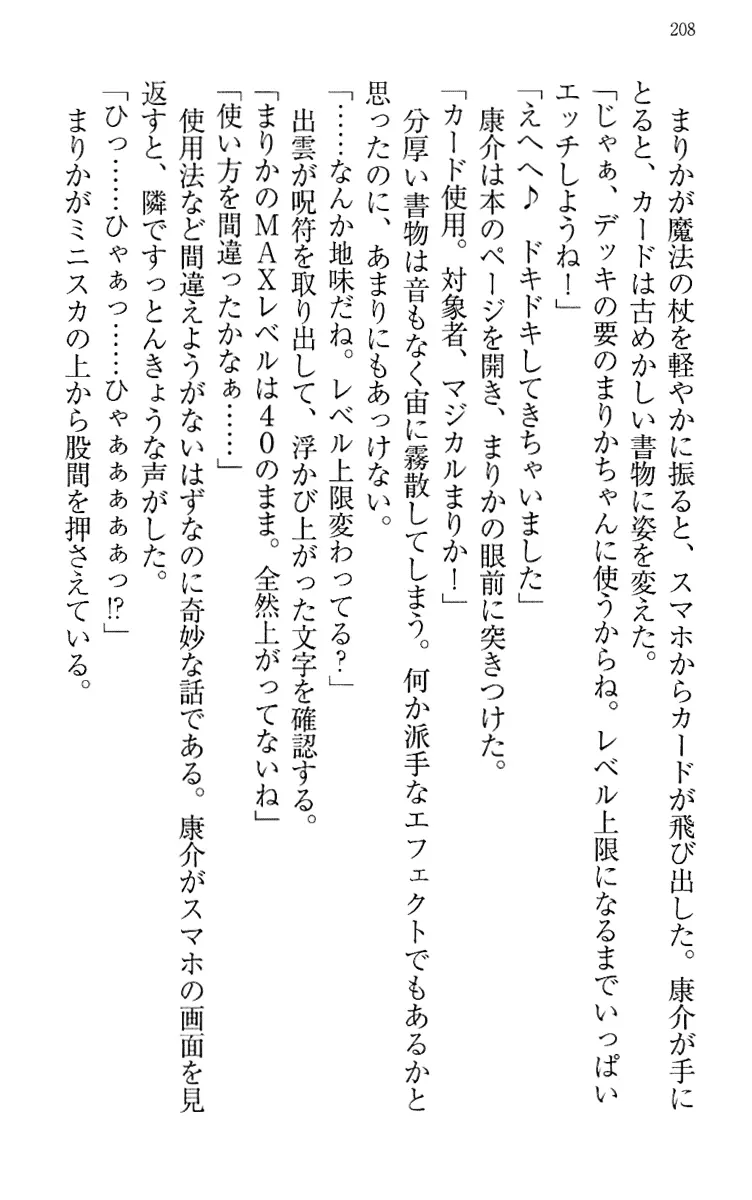 208
まりかが魔法の杖を軽やかに振ると、スマホからカードが飛び出した。康介が手に
とると、カードは古めかしい書物に姿を変えた。
「じゃぁ、デッキの要のまりかちゃんに使うからね。レベル上限になるまでいっぱい
エッチしようね！」
「えへへ♪　ドキドキしてきちゃいました」
康介は本のページを開き、まりかの眼前に突きつけた。
「カード使用。対象者、マジカルまりか！」
分厚い書物は音もなく宙に霧散してしまう。何か派手なエフェクトでもあるかと
思ったのに、あまりにもあっけない。
「……なんか地味だね。レベル上限変わってる？」
出雲が呪符を取り出して、浮かび上がった文字を確認する。
「まりかのＭＡＸレベルは４０のまま。全然上がってないね」
「使い方を間違ったかなぁ……」
使用法など間違えようがないはずなのに奇妙な話である。康介がスマホの画面を見
返すと、隣ですっとんきょうな声がした。
「ひっ……ひゃぁっ……ひゃぁぁぁぁぁっ!?」
まりかがミニスカの上から股間を押さえている。